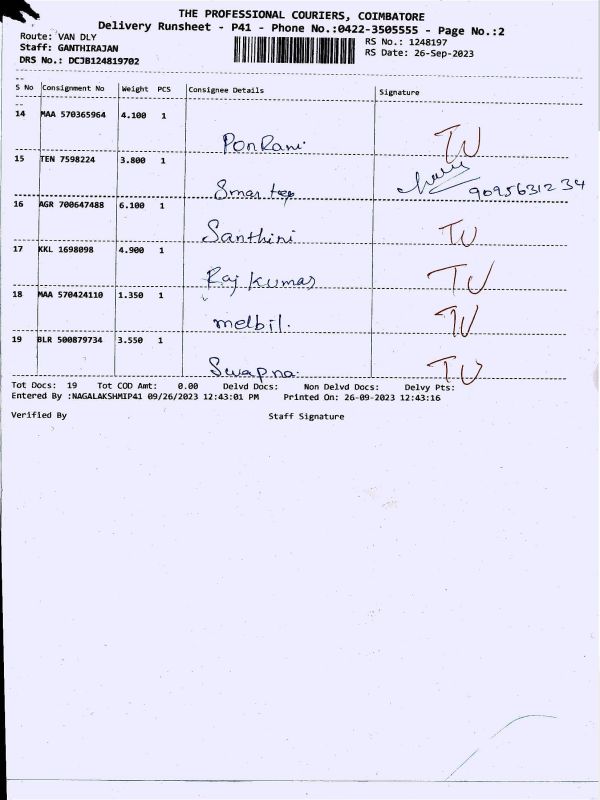 THE PROFESSIONAL COURIERS, COIMBATORE
Delivery Runsheet - P41 - Phone No.:0422-3505555 - Page No.:2
Route: VAN DLY
Staff: GANTHIRAJAN
DRS No.: DCJB124819702
RS No.: 1248197
RS Date: 26-Sep-2023
S No Consignment No Weight PCS Consignee Details Signature
14 MAA 570365964 4.100 1
PonRani TU
15 TEN 7598224 3.800 1
Smar 9095631234
16 AGR 700647488 6.100 1
Santhini TU
17 KKL 1698098 4.900 1
Raj kumar TU
18 MAA 570424110 1.350 1
melbil. TU
19 BLR 500879734 3.550 1
Swapna. TU
Tot Docs: 19 Tot COD Amt: 0.00 Delvd Docs: Non Delvd Docs: Delvy Pts:
Entered By :NAGALAKSHMIP41 09/26/2023 12:43:01 PM Printed On: 26-09-2023 12:43:16
Verified By Staff Signature